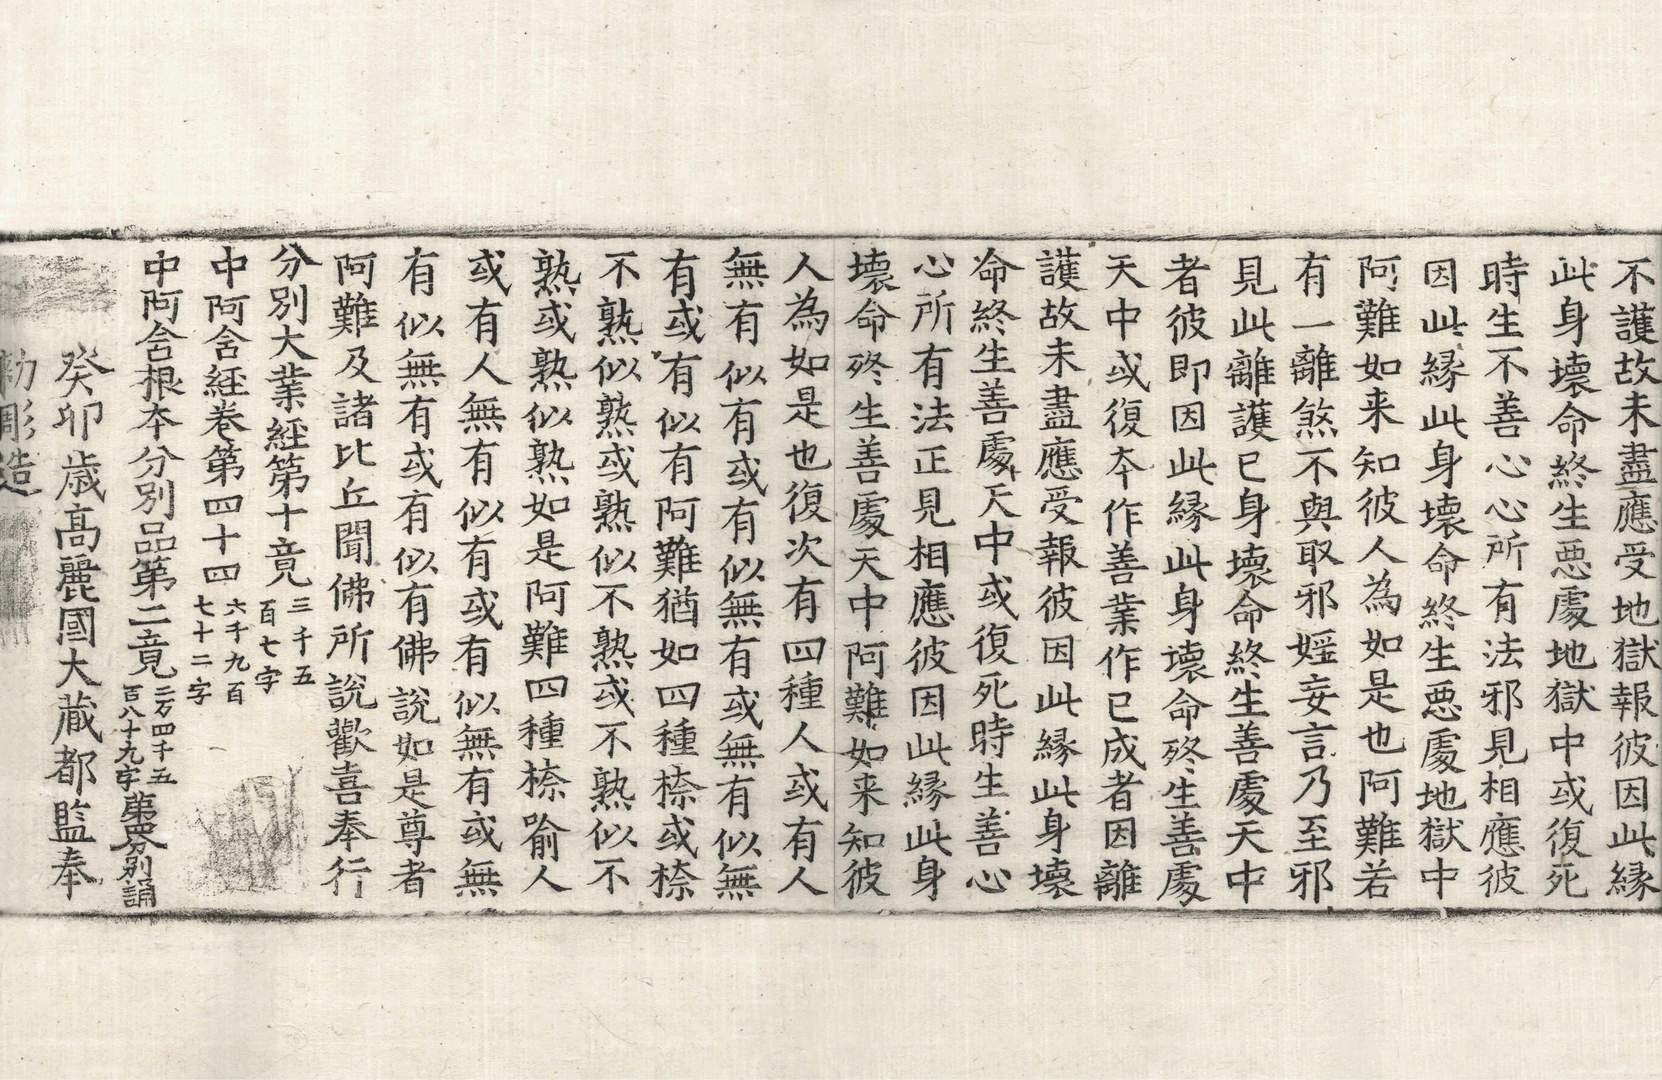 不護故未盡應受地獄報彼因此縁
此身壞命終生惡處地獄中或復死
時生不善心心所有法邪見相應彼
因此縁此身壞命終生惡處地獄中
阿難如来知彼人為如是也阿難若
有一離煞不與取邪婬妄言乃至邪
見此離護已身壞命終生善處天中
者彼即因此縁此身壞命終生善處
天中或復夲作善業作已成者因離
護故未盡應受報彼因此縁此身壞
命終生善處天中或復死時生善心
心所有法正見相應彼因此縁此身
壞命終生善處天中阿難如来知彼
人為如是也復次有四種人或有人
無有似有或有似無有或無有似無
有或有似有阿難猶如四種㮈或㮈
不熟似熟或熟似不熟或不熟似不
熟或熟似熟如是阿難四種㮈喻人
或有人無有似有或有似無有或無
有似無有或有似有佛說如是尊者
阿難及諸比丘聞佛所說歡喜奉行
分別大業經第十竟 三千五百七字
中阿含經卷第四十四 六千九百七十二字
中阿含根夲分別品第二竟 二万四千五百八十九字 第四分別誦
癸卯歳高麗國大藏都監奉
勅彫造